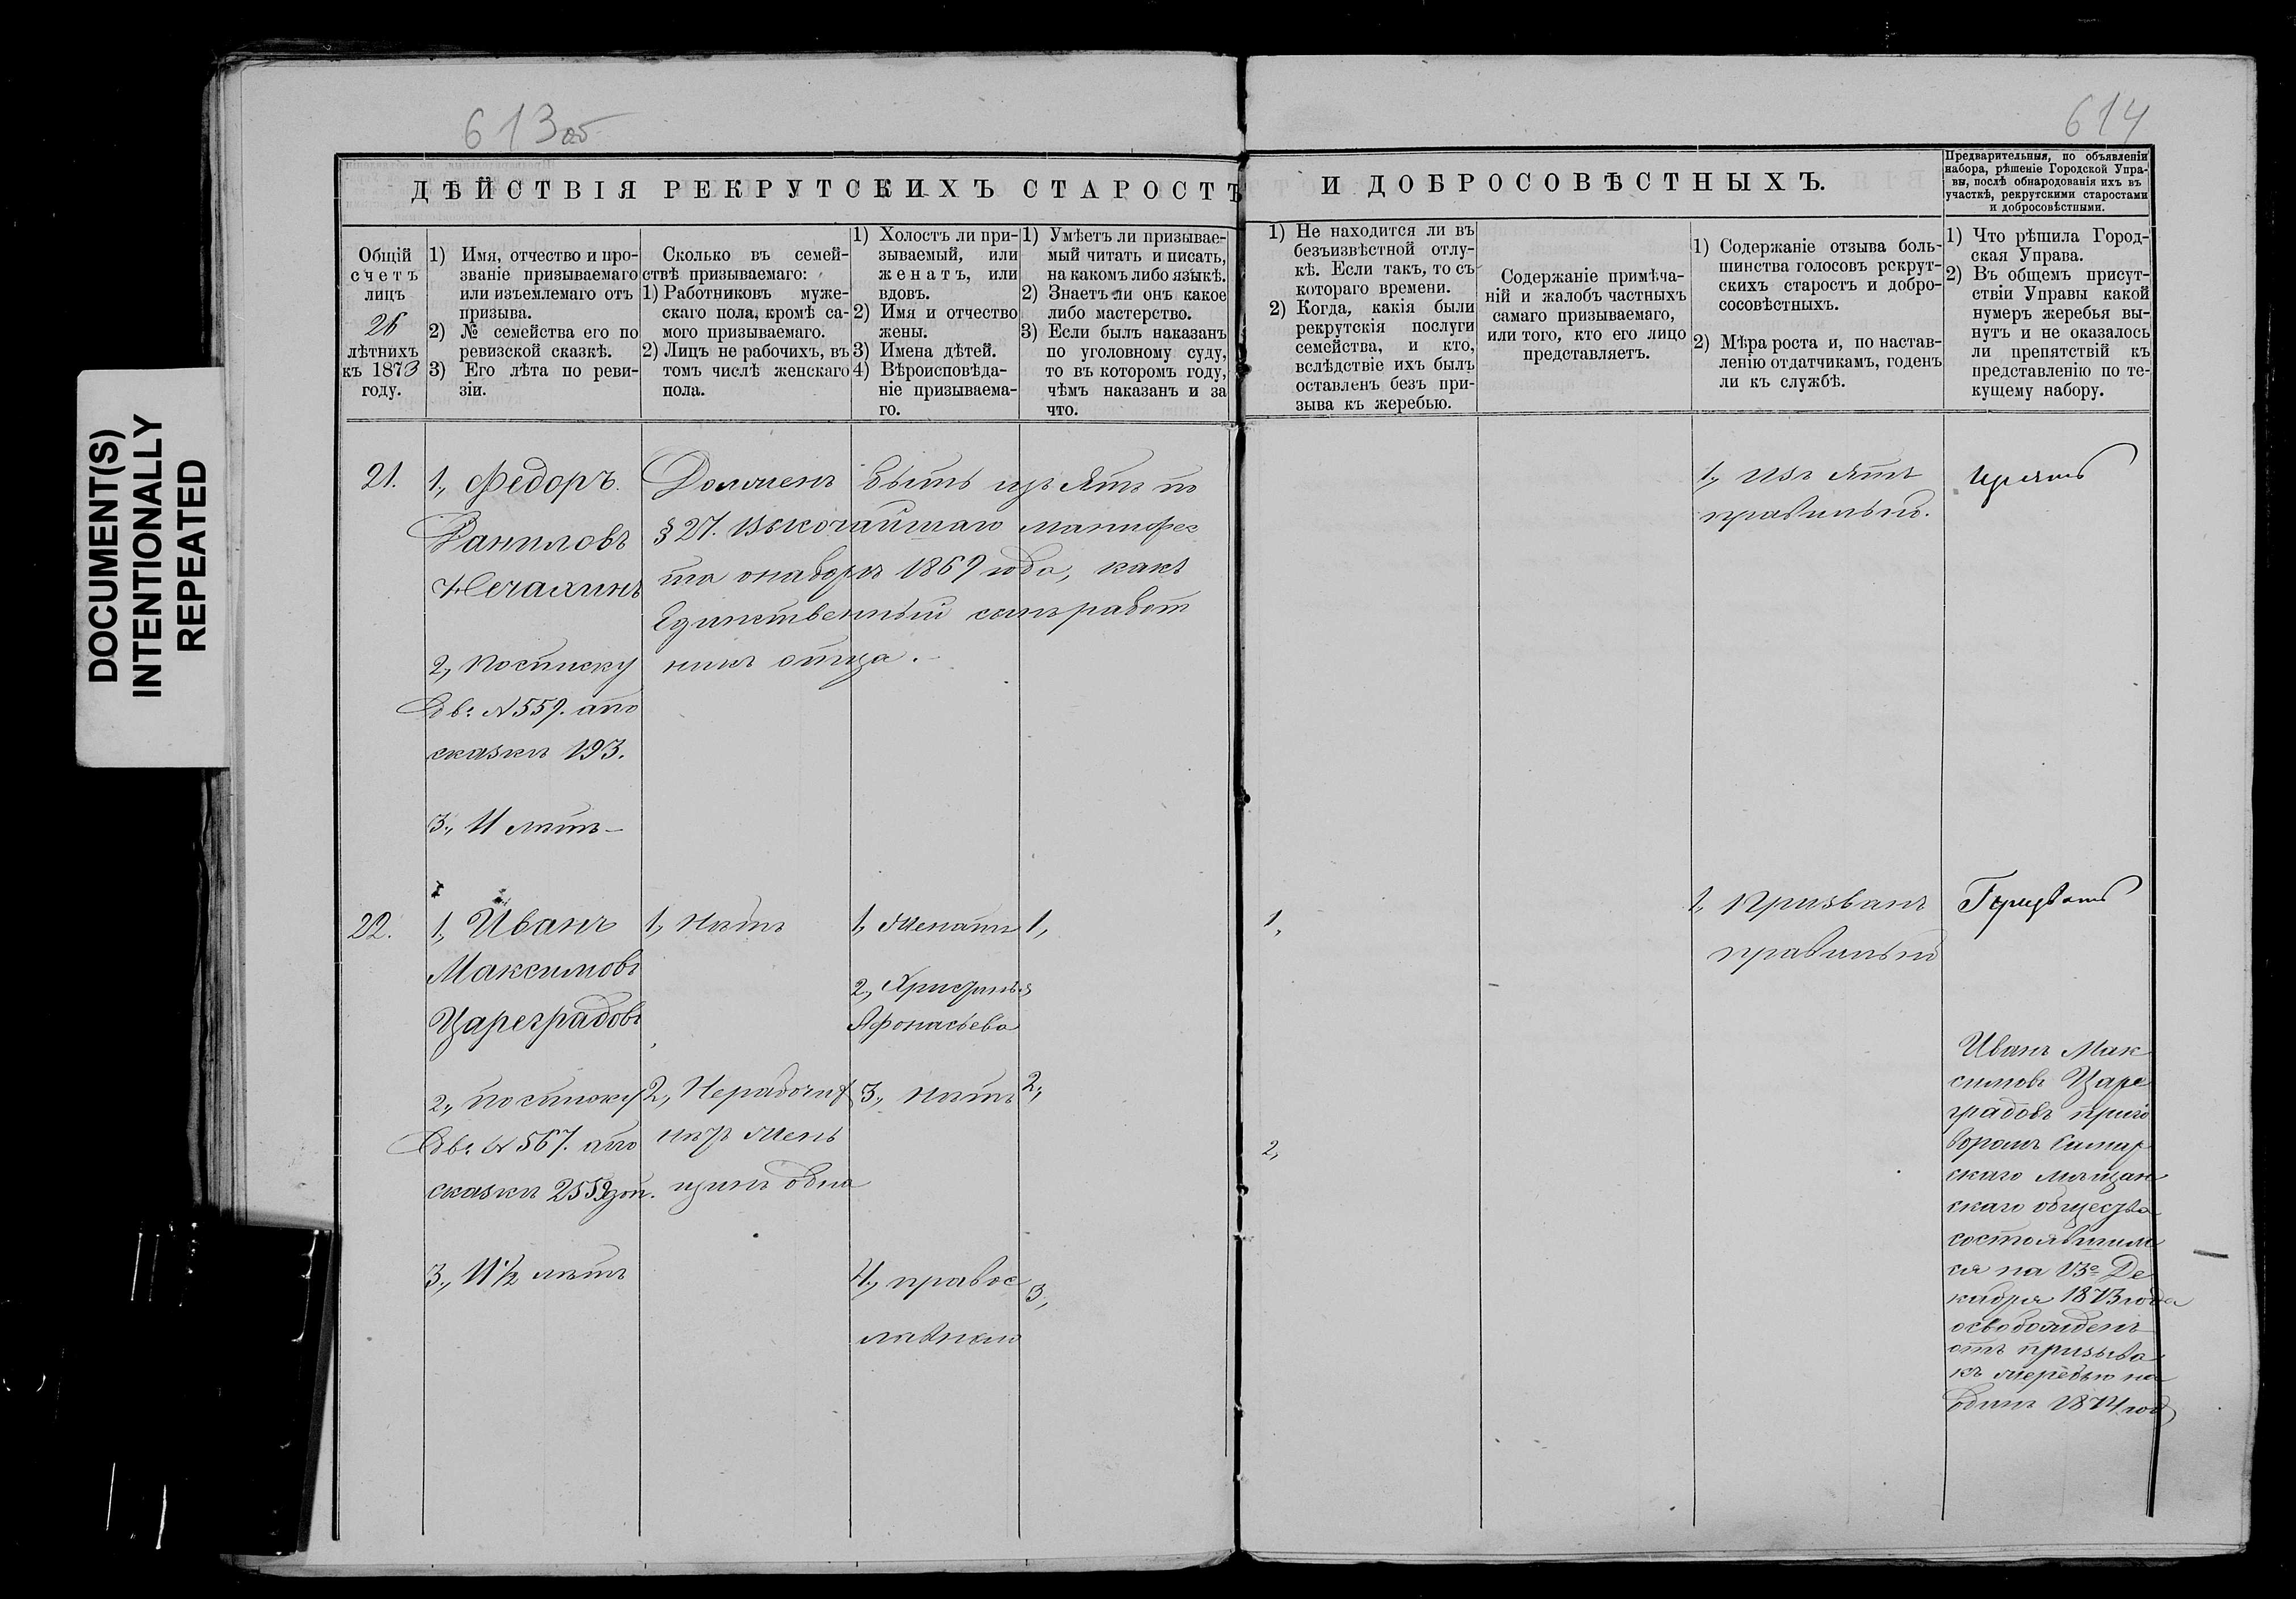 DOCUMENT(S)
INTENTIONALLY
REPEATED
613 об
614
ДѢЙСТВІЯ РЕКРУТСКИХЪ СТАРОСТЪ
И ДОБРОСОВѢСТНЫХЪ.
Предварительныя, по объявленіи
набора, рѣшеніе Городской Упра-
вы, послѣ обнародованія ихъ въ
участкѣ, рекрутскими старостами
и добросовѣстными.
Общій
счетъ
лицъ
26
лѣтнихъ
къ 1873
году.
1) Имя, отчество и про-
званіе призываемаго
или изъемлемаго отъ
призыва.
2) № семейства его по
ревизской сказкѣ.
3) Его лѣта по реви-
зіи.
Сколько въ семей-
ствѣ призываемаго:
1) Работниковъ муже-
скаго пола, кромѣ са-
мого призываемаго.
2) Лицъ не рабочихъ, въ
томъ числѣ женскаго
пола.
1) Холостъ ли при-
зываемый, или
женатъ, или
вдовъ.
2) Имя и отчество
жены.
3) Имена дѣтей.
4) Вѣроисповѣда-
ніе призываема-
го.
1) Умѣетъ ли призывае-
мый читать и писать,
на какомъ либо языкѣ.
2) Знаетъ ли онъ какое
либо мастерство.
3) Если былъ наказанъ
по уголовному суду,
то въ которомъ году,
чѣмъ наказанъ и за
что.
1) Не находится ли въ
безъизвѣстной отлу-
кѣ. Если такъ, то съ
котораго времени.
2) Когда, какія были
рекрутскія послуги
семейства, и кто,
вслѣдствіе ихъ былъ
оставленъ безъ при-
зыва къ жеребью.
Содержаніе примѣча-
ній и жалобъ частныхъ
самаго призываемаго,
или того, кто его лицо
представляетъ.
1) Содержаніе отзыва боль-
шинства голосовъ рекрут-
скихъ старостъ и добро-
сосовѣстныхъ.
2) Мѣра роста и, по настав-
ленію отдатчикамъ, годенъ
ли къ службѣ.
1) Что рѣшила Город-
ская Управа.
2) Въ общемъ присут-
ствіи Управы какой
нумеръ жеребья вы-
нутъ и не оказалось
ли препятствій къ
представленію по те-
кущему набору.
21.
1, Федоръ
Даниловъ
Нечаχинъ
2, посписку
Об: № 559. апо
сказкѣ 193.
3., 11 лѣтъ
Долженъ быть изъятъ по
§ 27. Высочайшаго манифес
та онаборѣ 1869 года, какъ
Единственный сынъ работ
никъ отца.
1, Изъ ятъ
правильно.
изъять
22.
1, Иванъ
Максимовъ
Цареградовъ
2, посписку
Об: № 567. апо
сказкѣ 2559 доп.
3., 11 ½ лѣтъ
1, Нѣтъ
2, Нерабочих
нѣтъ жен
щинъ одна
1, Женатъ
2, Христинья
Афонасьева
3., нѣтъ
4., правос
лавнаго
1,
2,
3,
1,
2,
1, Призванъ
правильно
Призвать
Иванъ Мак
симовъ Царе
градовъ приго
воромъ Самар
скаго мѣщан
скаго общества
состоявшим
ся на 13е Де
кабря 1873 года
освобожденъ
отъ призыва
къ жеребью на
одинъ 1874 год